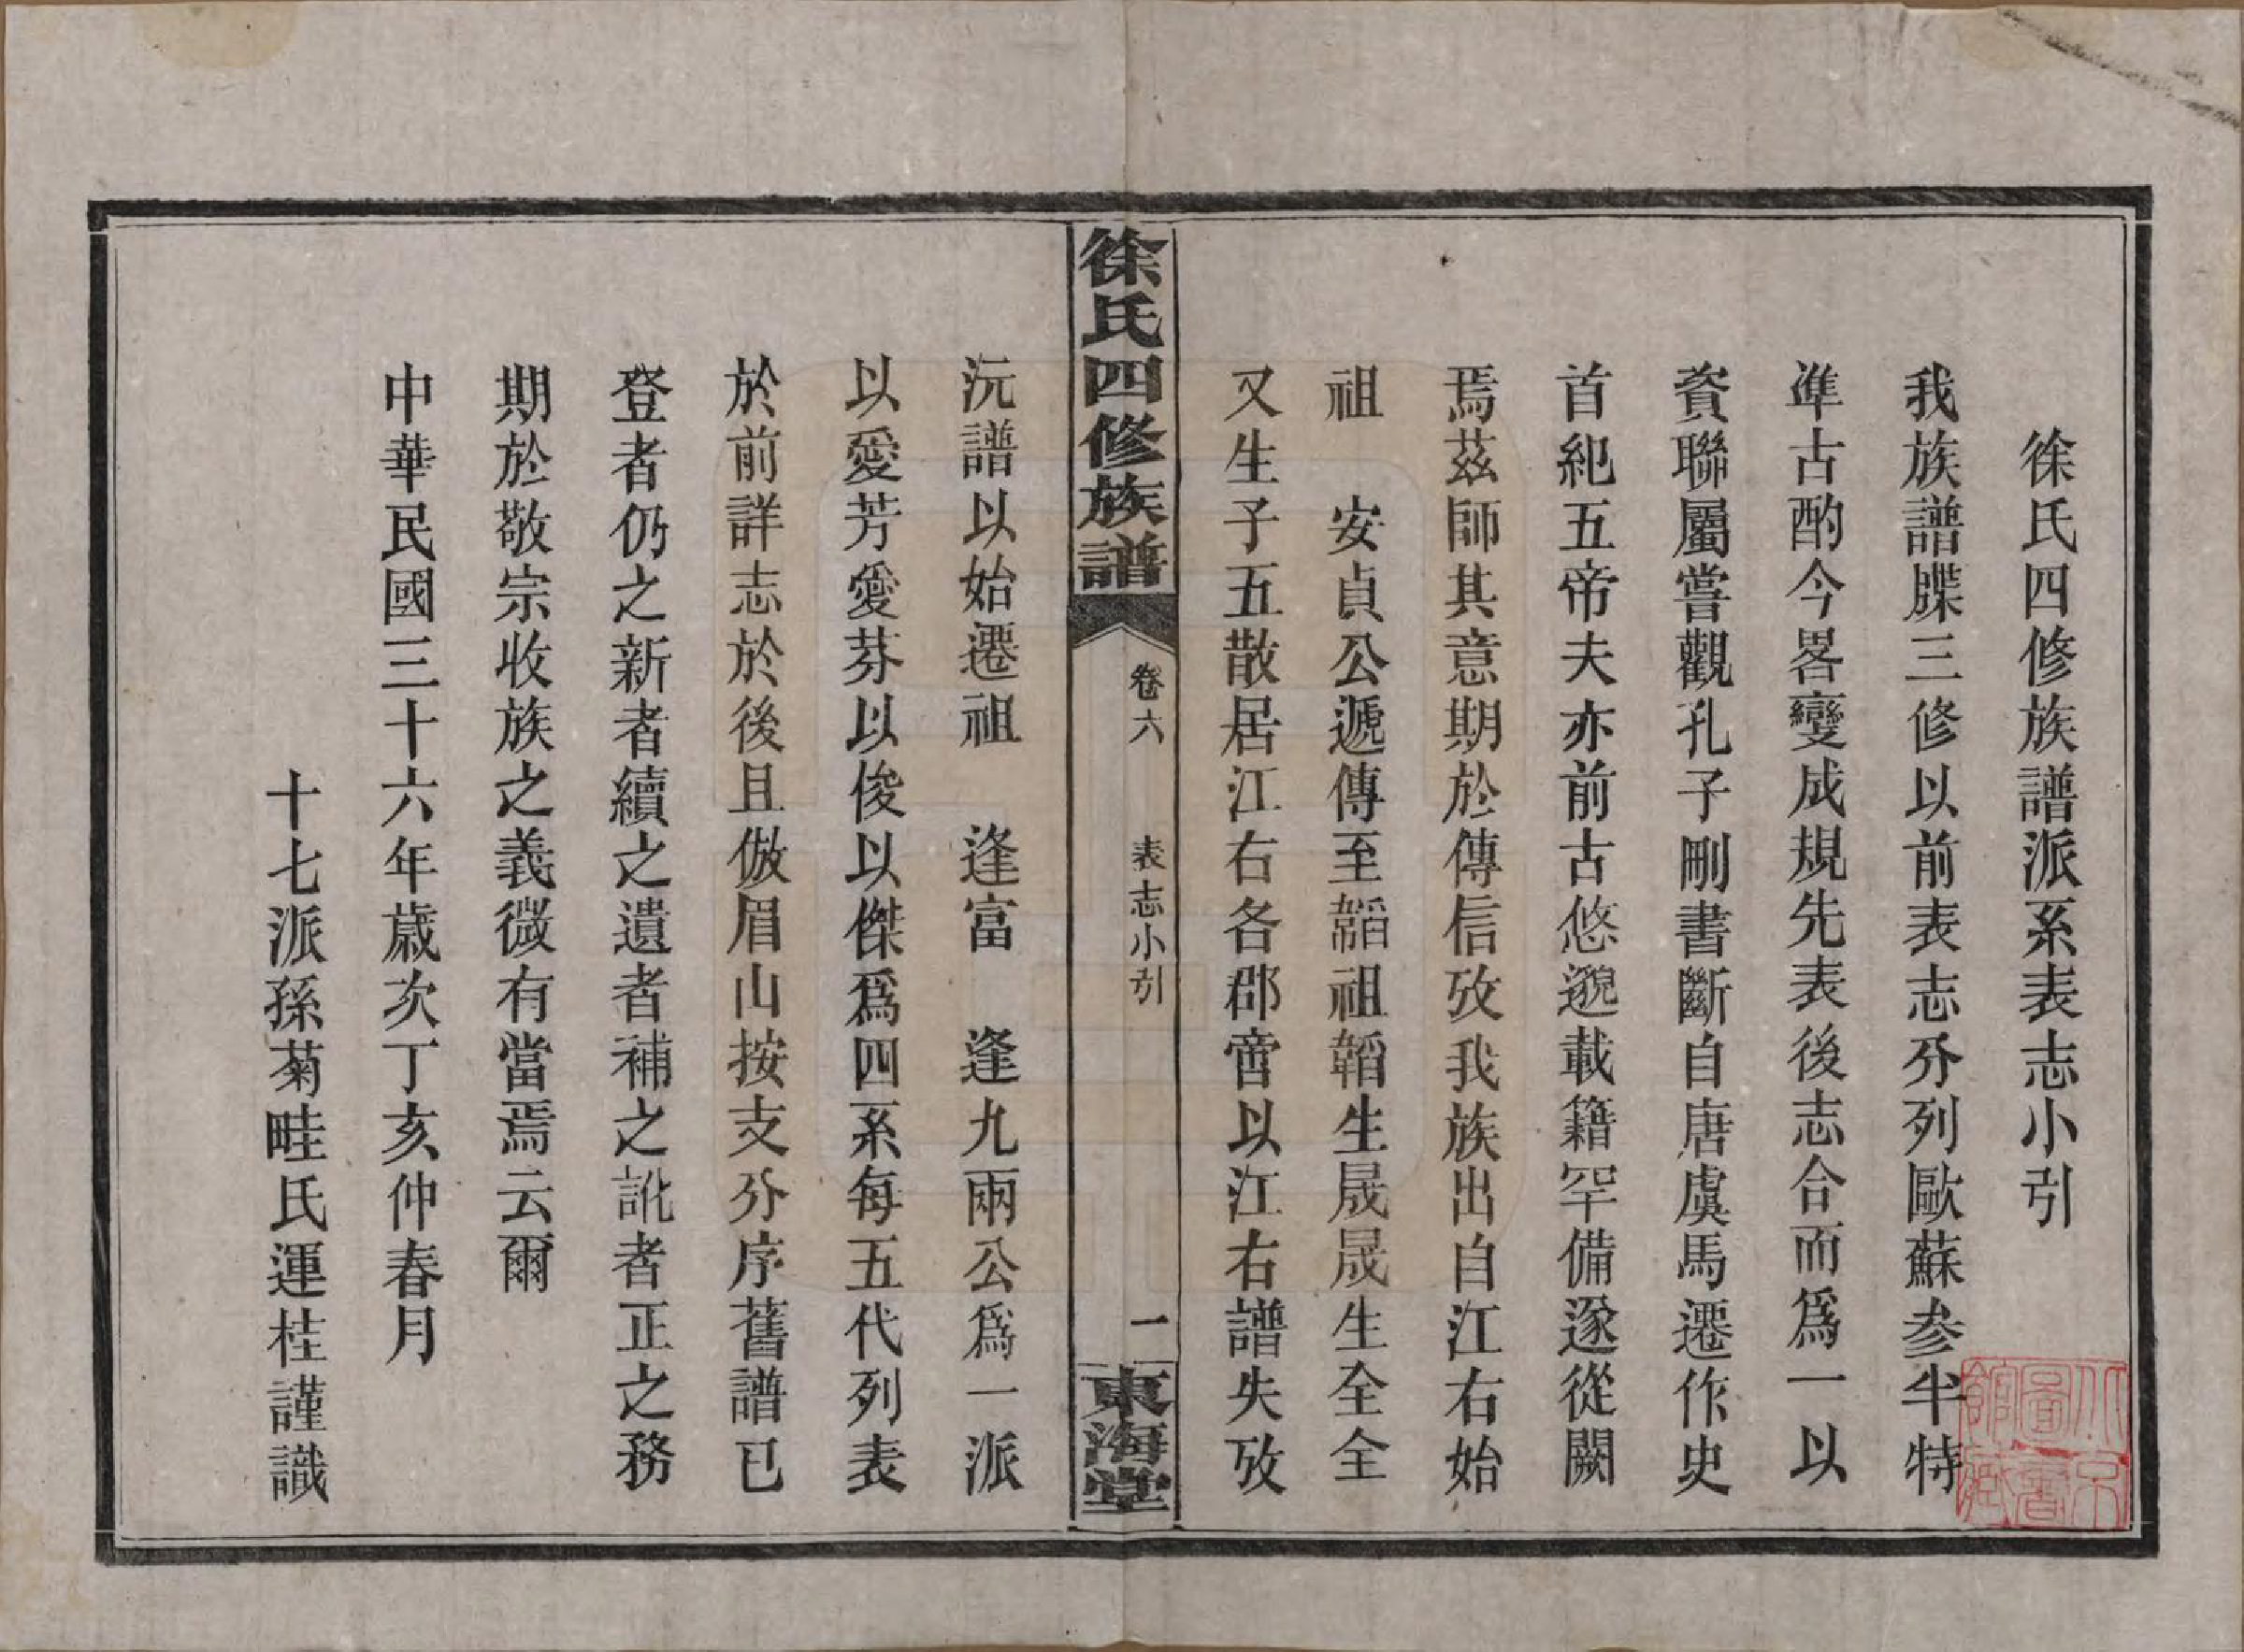 徐氏四修族譜派系表志小引
我族譜牒三修以前表志分列歐蘇參半特
準古酌今畧變成規先表後志合而爲一以
資聯屬嘗觀孔子刪書斷自唐虞馬遷作史
首紀五帝夫亦前古悠邈載籍罕備遂從闕
焉茲師其意期於傳信攷我族出自江右始
祖 安貞公遞傳至韜祖韜生晟晟生全全
又生子五散居江右各郡啻以江右譜失攷
徐氏四修族譜
卷六
表志小引
一
東海堂
沅譜以始遷祖 逢富 逢九兩公爲一派
以愛芳愛芬以俊以傑爲四系每五代列表
於前詳志於後且倣眉山按支分序舊譜已
登者仍之新者續之遺者補之訛者正之務
期於敬宗收族之義微有當焉云爾
中華民國三十六年歲次丁亥仲春月
十七派孫菊畦氏運桂謹識